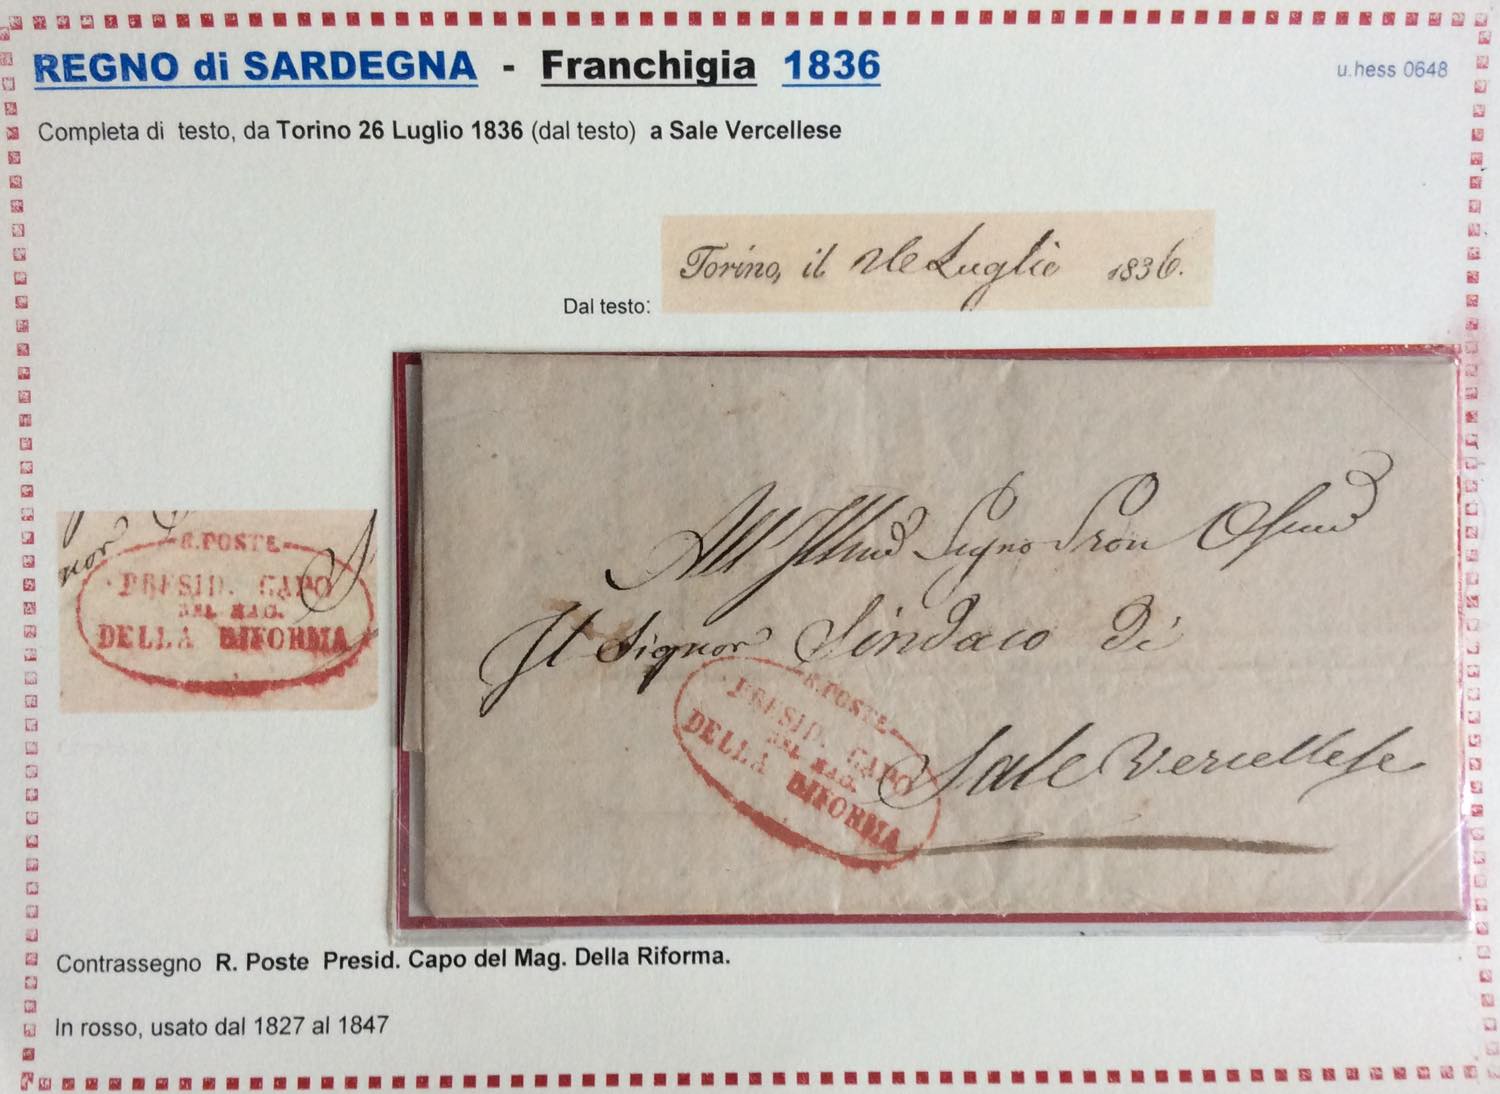 REGNO di SARDEGNA - Franchigia 1836
u.hess 0648
Completa di testo, da Torino 26 Luglio 1836 (dal testo) a Sale Vercellese
Torino, il 26 Luglio 1836.
Dal testo:
R. POSTE
PRESID. CAPO
DEL MAG.
DELLA RIFORMA
All'Illmo Signo Pron Osmo
Il Signor Sindaco di
Sale Vercellese
R. POSTE
PRESID. CAPO
DEL MAG.
DELLA RIFORMA
Contrassegno R. Poste Presid. Capo del Mag. Della Riforma.
In rosso, usato dal 1827 al 1847